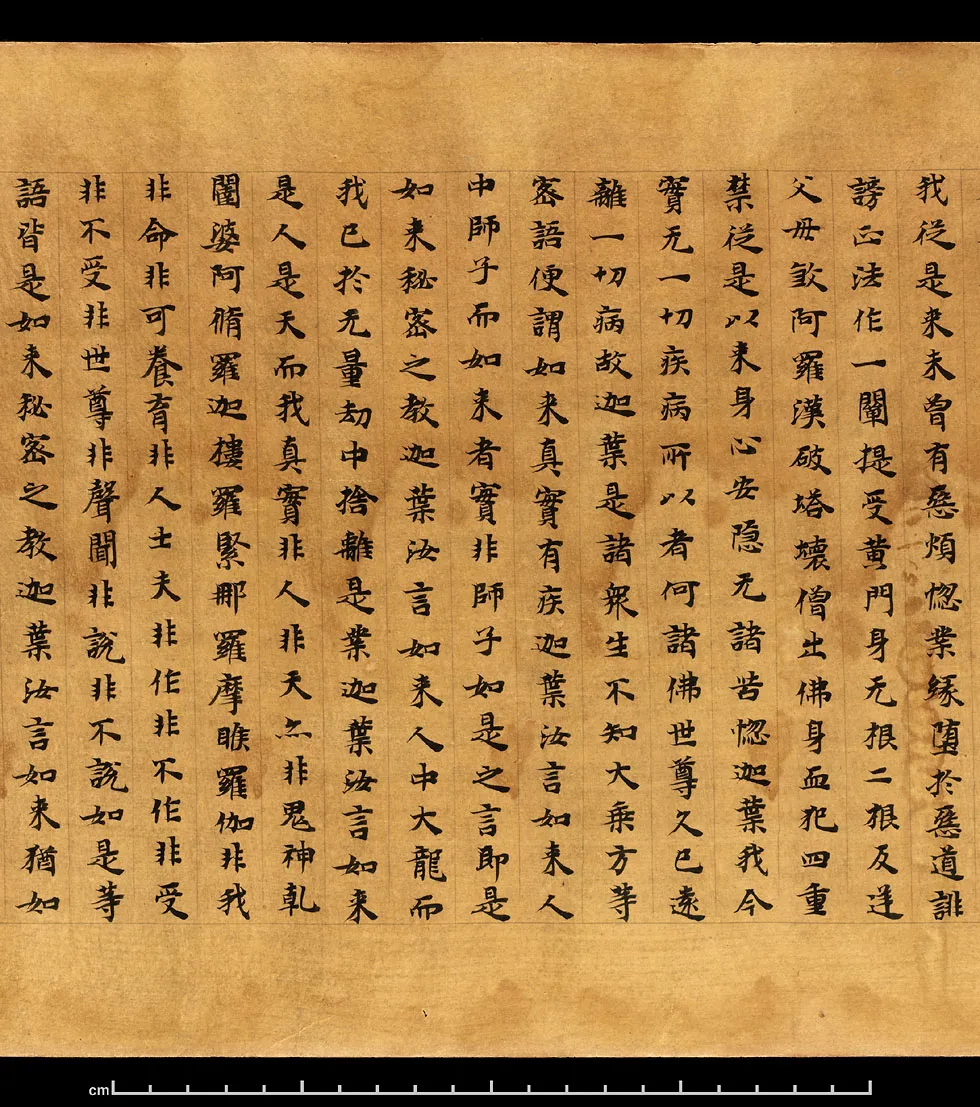 我從是來未曾有惡煩惚業緣堕於惡道誹
謗正法作一闡提受黃門身无根二根反逆
父母煞阿羅漢破塔壞僧出佛身血犯四重
禁從是以來身心安隱无諸苦惚迦葉我今
實无一切疾病所以者何諸佛世尊久已遠
離一切病故迦葉是諸衆生不知大乘方等
密語便謂如來真實有疾迦葉汝言如來人
中師子而如來者實非師子如是之言即是
如來秘密之教迦葉汝言如來人中大龍而
我已於无量劫中捨離是業迦葉汝言如來
是人是天而我真實非人非天亦非鬼神乹
闥婆阿脩羅迦樓羅緊那羅摩睺羅伽非我
非命非可養育非人士夫非作非不作非受
非不受非世尊非聲聞非說非不說如是等
語皆是如來秘密之教迦葉汝言如來猶如
cm